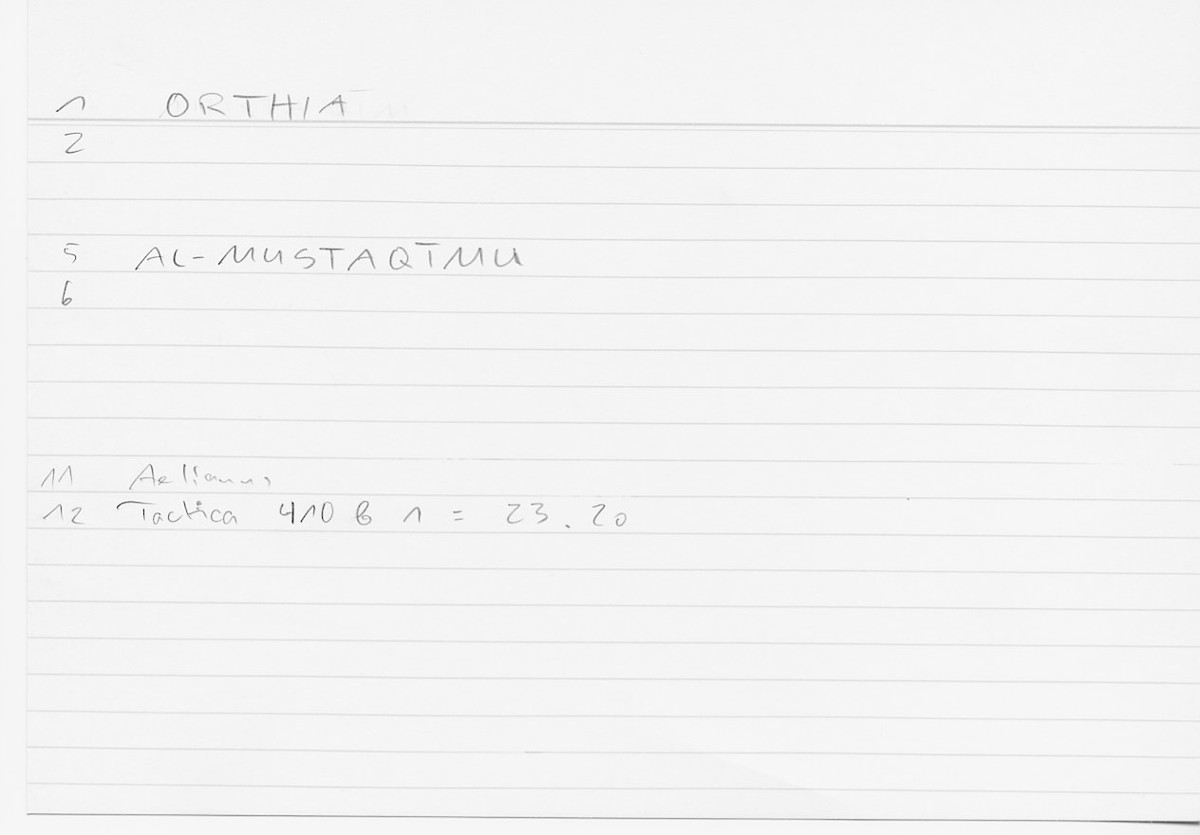 1 ORTHIA
2
5 AL-MUSTAQTMU
6
11 Aelianus
12 Tactica 410 B 1 = 23.20